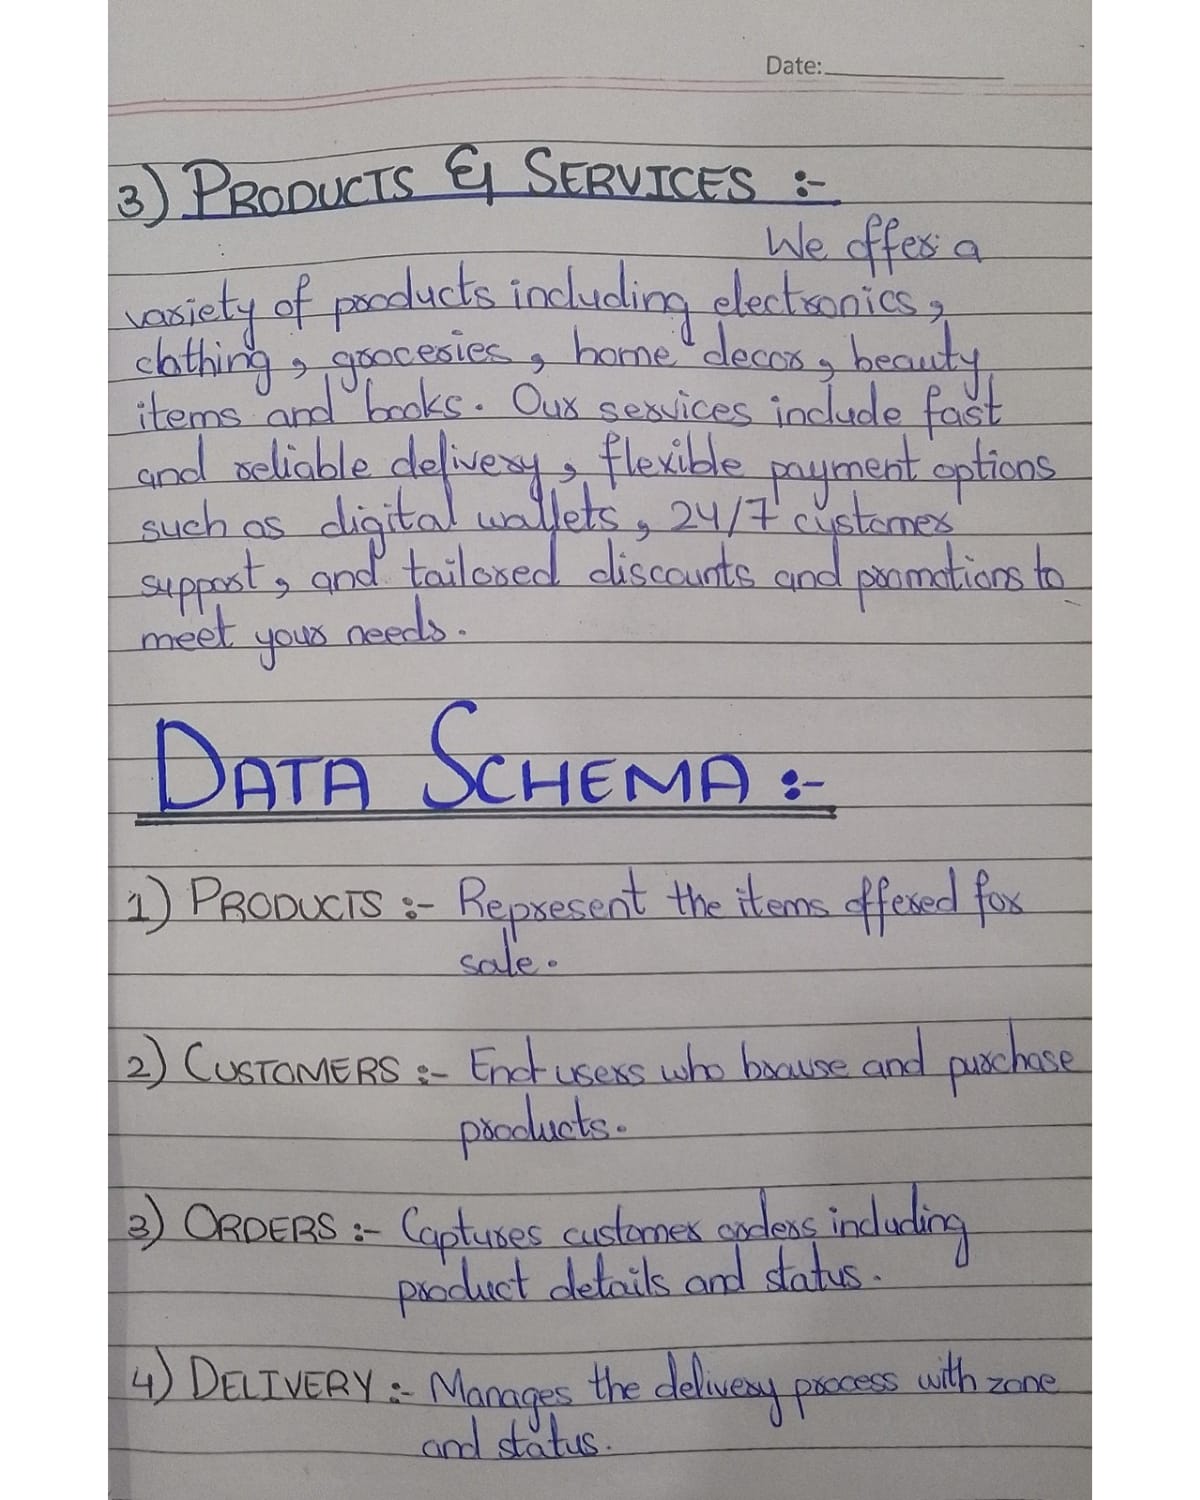 Date:
3) PRODUCTS & SERVICES :-
We offer a
variety of products including electronics,
clothing, groceries, home decor, beauty
items and books. Our services include fast
and reliable delivery, flexible payment options
such as digital wallets, 24/7 customer
support, and tailored discounts and promotions to
meet your needs.
DATA SCHEMA :-
1) PRODUCTS :- Represent the items offered for
sale.
2) CUSTOMERS :- End users who brawse and purchase
products.
3) ORDERS :- Captures customer orders including
product details and status.
4) DELIVERY :- Manages the delivery process with zone
and status.